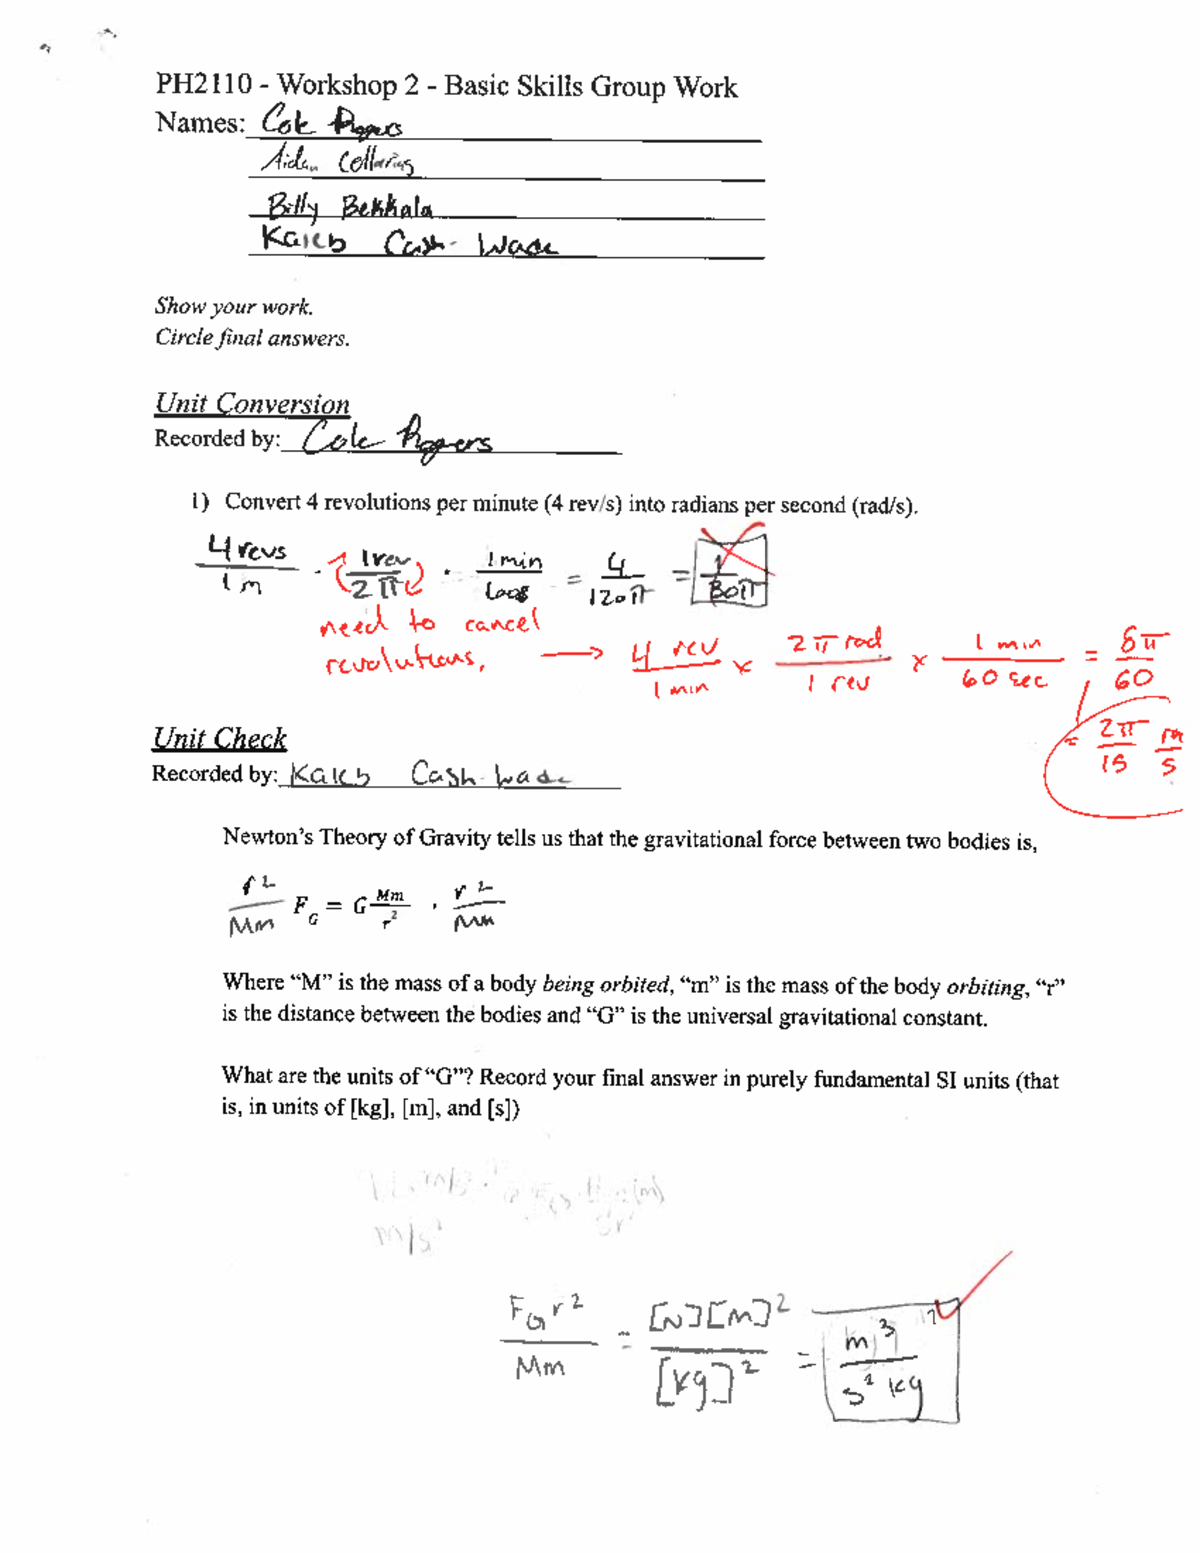 PH2110 - Workshop 2 - Basic Skills Group Work
Names: Cole Rogers
Aidan
Billy Bekkala
Kaleb Cash-Wade
Show your work.
Circle final answers.
Unit Conversion
Recorded by: Cole Rogers
1) Convert 4 revolutions per minute (4 rev/s) into radians per second (rad/s).
4 revs / 1 m · 1 rev / 2π · 1 min / 60s = 4 / 120π = 1 / 30π
need to cancel
revolutions, → 4 rev / 1 min × 2π rad / 1 rev × 1 min / 60 sec = 8π / 60
= 2π / 15 m / s
Unit Check
Recorded by: Kaleb Cash-Wade
Newton's Theory of Gravity tells us that the gravitational force between two bodies is,
r² / Mm F_G = G Mm / r² · r² / Mm
Where “M” is the mass of a body being orbited, “m” is the mass of the body orbiting, “r”
is the distance between the bodies and “G” is the universal gravitational constant.
What are the units of “G”? Record your final answer in purely fundamental SI units (that
is, in units of [kg], [m], and [s])
m/s²
F_G r² / Mm = [N][m]² / [kg]² = m³ / s² kg